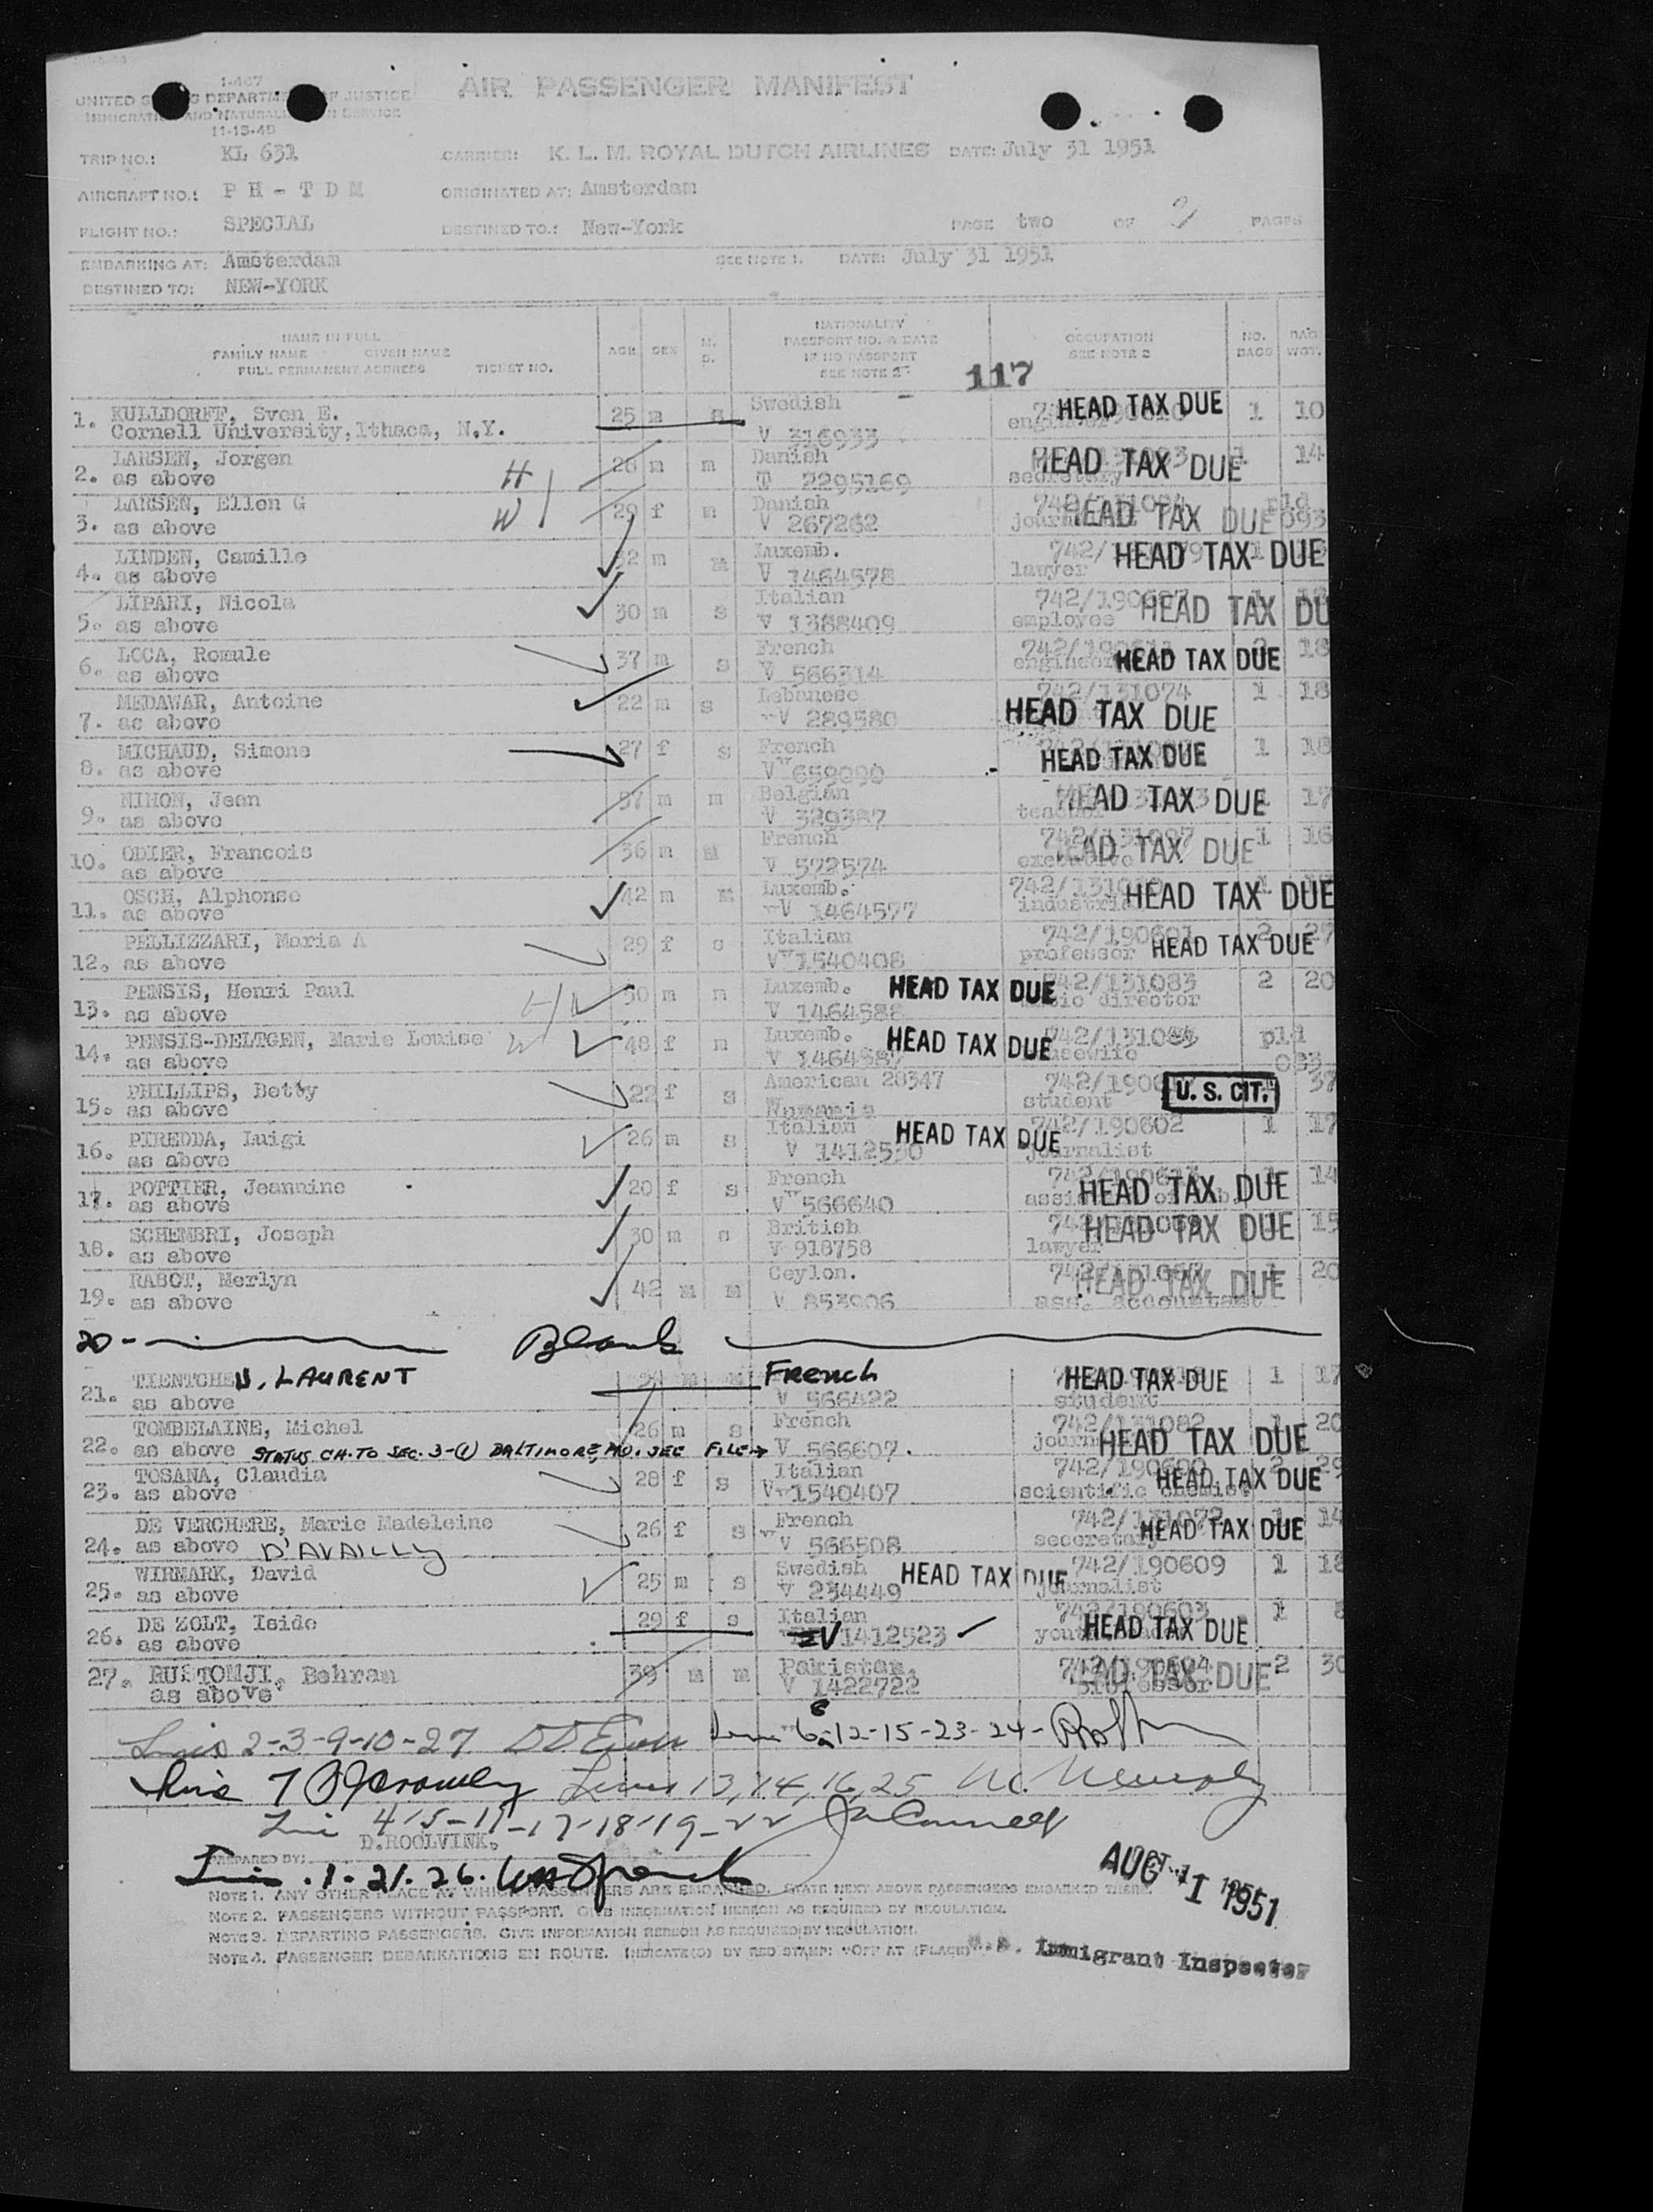 I-467
UNITED DEPARTMENT OF JUSTICE
IMMIGRATION AND NATURALIZATION SERVICE
11-15-48
AIR PASSENGER MANIFEST
TRIP NO.: KL 631 CARRIER: K. L. M. ROYAL DUTCH AIRLINES DATE: July 31 1951
AIRCRAFT NO.: P H - T D M ORIGINATED AT: Amsterdam
FLIGHT NO.: SPECIAL DESTINED TO.: New-York PAGE two OF PAGES
EMBARKING AT: Amsterdam SEE NOTE 1. DATE: July 31 1951
DESTINED TO: NEW-YORK
NAME IN FULL
FAMILY NAME GIVEN NAME
FULL PERMANENT ADDRESS TICKET NO.
AGE SEX M. S.
NATIONALITY
PASSPORT NO. & DATE
IF NO PASSPORT
SEE NOTE 2
OCCUPATION
SEE NOTE 2
NO. BAGS BAG WGT.
117
1. KULLDORFF, Sven E. 25 m s Swedish HEAD TAX DUE 1 10
Cornell University, Ithaca, N.Y. V 316933
2. LARSEN, Jorgen H 28 m m Danish HEAD TAX DUE 1 14
as above T 2295169 secretary
3. LARSEN, Ellen G W 29 f m Danish 742/131084 pld
as above V 267262 HEAD TAX DUE 093
4. LINDEN, Camille m m Luxemb. 742/ HEAD TAX DUE
as above V 1464578 lawyer
5. LIPARI, Nicola 30 m s Italian 742/190607 HEAD TAX DU
as above V 1388409 employee
6. LOCA, Romule 37 m s French HEAD TAX DUE 18
as above V 566314 engineer
7. MEDAWAR, Antoine 22 m s Lebanese 742/131074 1 18
as above V 289580 HEAD TAX DUE
8. MICHAUD, Simone 27 f s French HEAD TAX DUE 1 18
as above V 659090
9. NIHON, Jean 57 m m Belgian HEAD TAX DUE 1 17
as above V 329387 teacher
10. ODIER, Francois 36 m m French 742/131087 1 16
as above V 572574 executive HEAD TAX DUE
11. OSCH, Alphonse 42 m m Luxemb. HEAD TAX DUE
as above V 1464577
12. PELLIZZARI, Maria A 29 f s Italian 742/190601 2 27
as above V 1540408 professor HEAD TAX DUE
13. PENSIS, Henri Paul H 50 m m Luxemb. HEAD TAX DUE 742/131083 2 20
as above V 1464588 music director
14. PENSIS-DELTGEN, Marie Louise W 48 f m Luxemb. HEAD TAX DUE 742/131084 pld
as above V 1464587 housewife 083
15. PHILLIPS, Betty 22 f s American 20347 742/190 U. S. CIT. 37
as above student
16. PIREDDA, Luigi 26 m s Italian HEAD TAX DUE 742/190602 1 17
as above V 1412530 journalist
17. POTTIER, Jeannine 20 f s French HEAD TAX DUE 1 14
as above V 566640
18. SCHEMBRI, Joseph 30 m s British HEAD TAX DUE 1 15
as above V 918758 lawyer
19. RABOT, Merlyn 42 m m Ceylon. HEAD TAX DUE 1 20
as above V 853906 ass. accountant
20 - Blank
21. TIENTCHEU. LAURENT m m French HEAD TAX DUE 1 17
as above V 566422 student
22. TOMBELAINE, Michel 26 m s French 742/131082 1 20
as above STATUS CH. TO SEC. 3-(1) BALTIMORE, MD. SEE FILE→ V 566607. HEAD TAX DUE
23. TOSANA, Claudia 28 f s Italian 742/190600 2 29
as above V 1540407 scientific chemist HEAD TAX DUE
24. DE VERCHERE, Marie Madeleine 26 f s French 742/131072 1 14
as above D'AVAILLY V 566508 secretary HEAD TAX DUE
25. WIRMARK, David 25 m s Swedish HEAD TAX DUE 742/190609 1 18
as above V 234449 journalist
26. DE ZOLT, Iside 29 f s Italian 742/190603 1 8
as above V 1412523 HEAD TAX DUE
27. RUSTOMJI, Behram 39 m m Pakistan. 742/190604 2 30
as above V 1422722 professor HEAD TAX DUE
Lines 2-3-9-10-27 Line 6-8-12-15-23-24-
Line 7 Lines 13, 14, 16, 25
Line 4-5-11-17-18-19-22
D.ROOLVINK.
PREPARED BY:
Lines 1. 21. 26.
AUG 1 1951
NOTE 1. ANY OTHER PLACE AT WHICH PASSENGERS ARE EMBARKED. STATE NEXT ABOVE PASSENGERS EMBARKED THERE.
NOTE 2. PASSENGERS WITHOUT PASSPORT. GIVE INFORMATION HEREON AS REQUIRED BY REGULATION.
NOTE 3. DEPARTING PASSENGERS. GIVE INFORMATION HEREON AS REQUIRED BY REGULATION.
NOTE 4. PASSENGER DEBARKATIONS EN ROUTE. INDICATE(D) BY RED STAMP: "OFF AT (PLACE)"
U.S. Immigrant Inspector